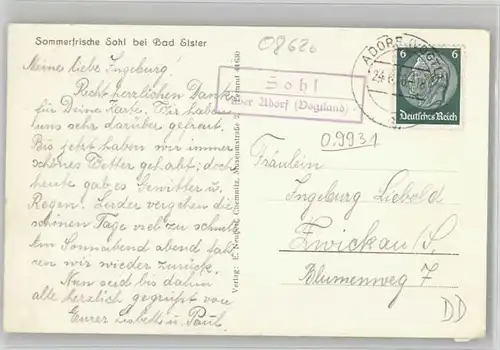 Sommerfrische Sohl bei Bad Elster
08626
Meine liebe Ingeburg!
Recht herzlichen Dank
für Deine Karte. Wir haben
uns sehr darüber gefreut.
Bis jetzt haben wir immer
schönes Wetter gehabt; doch
heute gab es Gewitter u.
Regen. Leider vergehen die
schönen Tage viel zu schnell
Sonnabend abend fah-
ren wir wieder zurück.
Nun seid bis dahin
alle herzlich gegrüßt von
Eurer Lisbeth u. Paul.
Verlag: E. Neubert, Chemnitz, Museumstraße
Sohl
über Adorf (Vogtland)
ADORF (VOGTL)
6 6
Deutsches Reich
09931
Fräulein
Ingeburg Liebold
Zwickau/S.
Blumenweg 7
DD